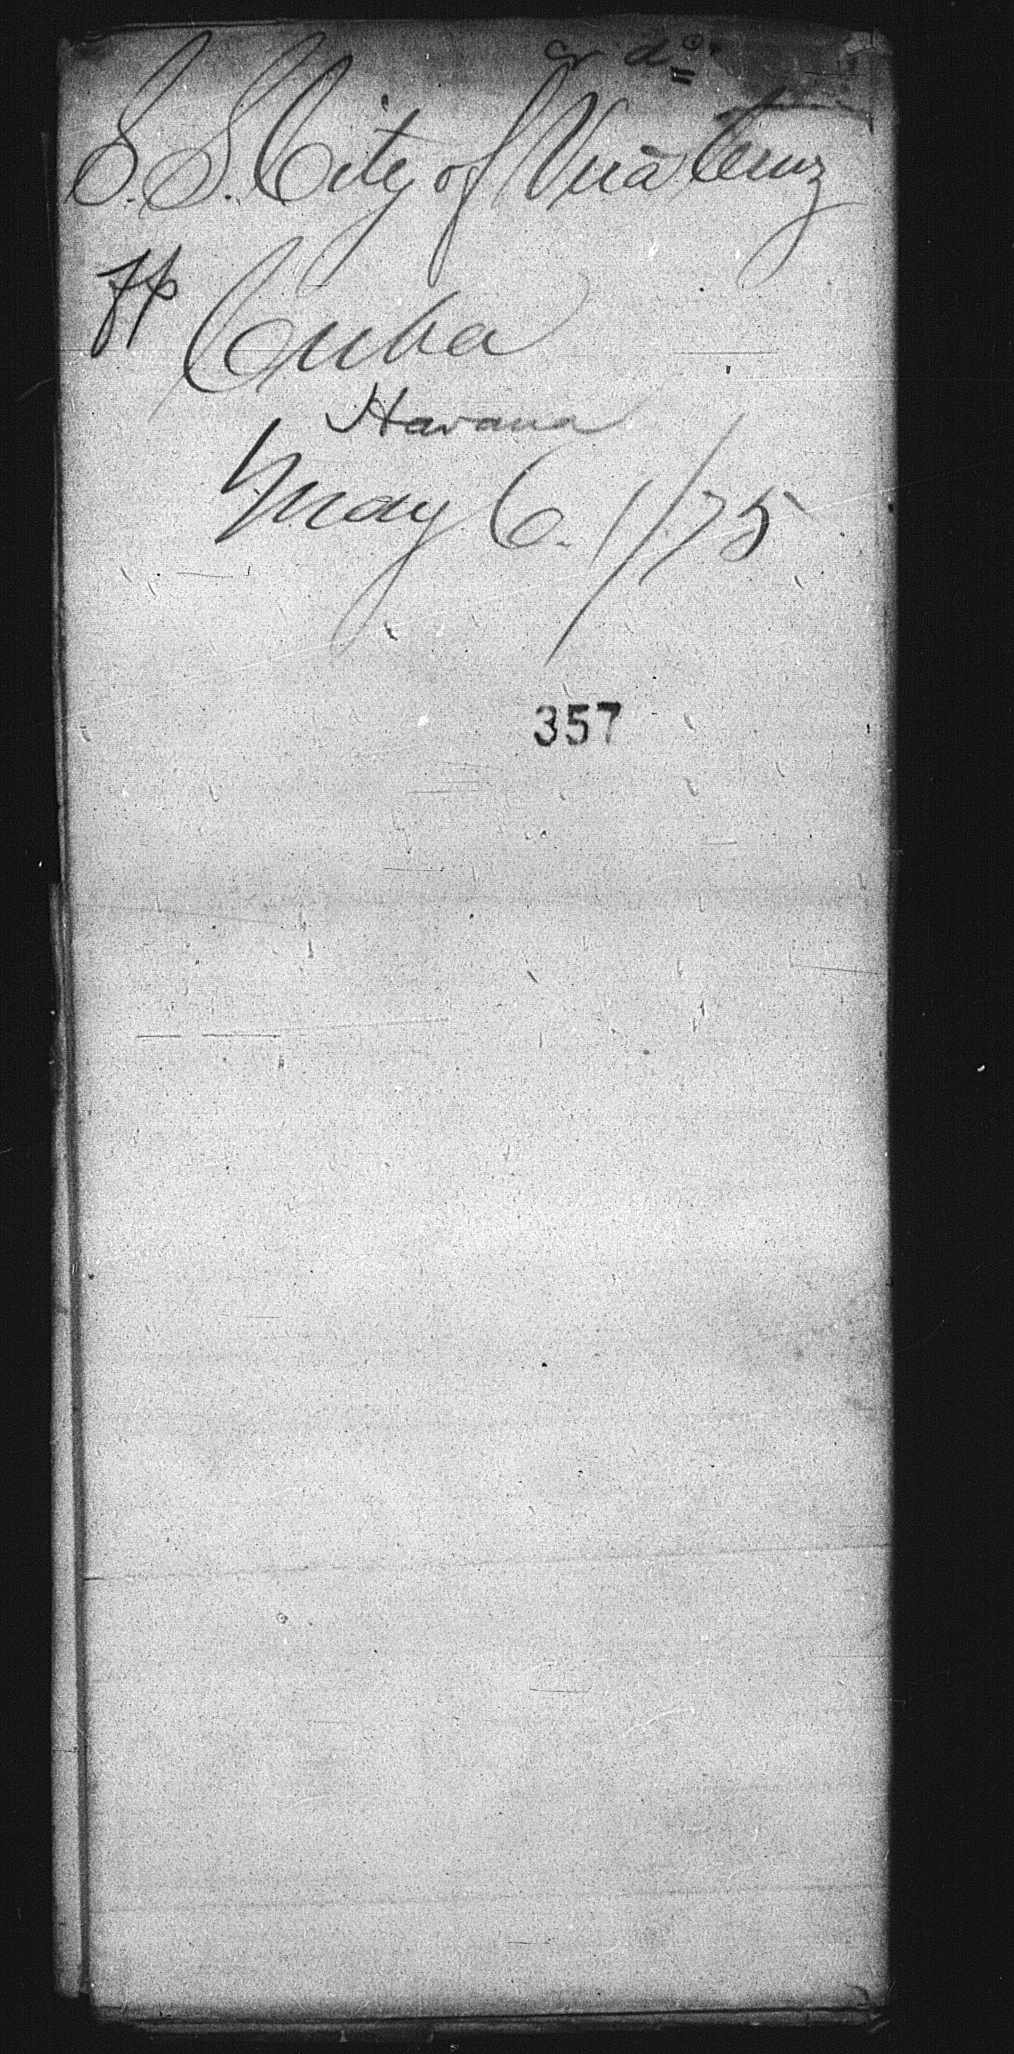 S. S. City of Vera Cruz
Cuba
Havana
May 6. 1/75
357